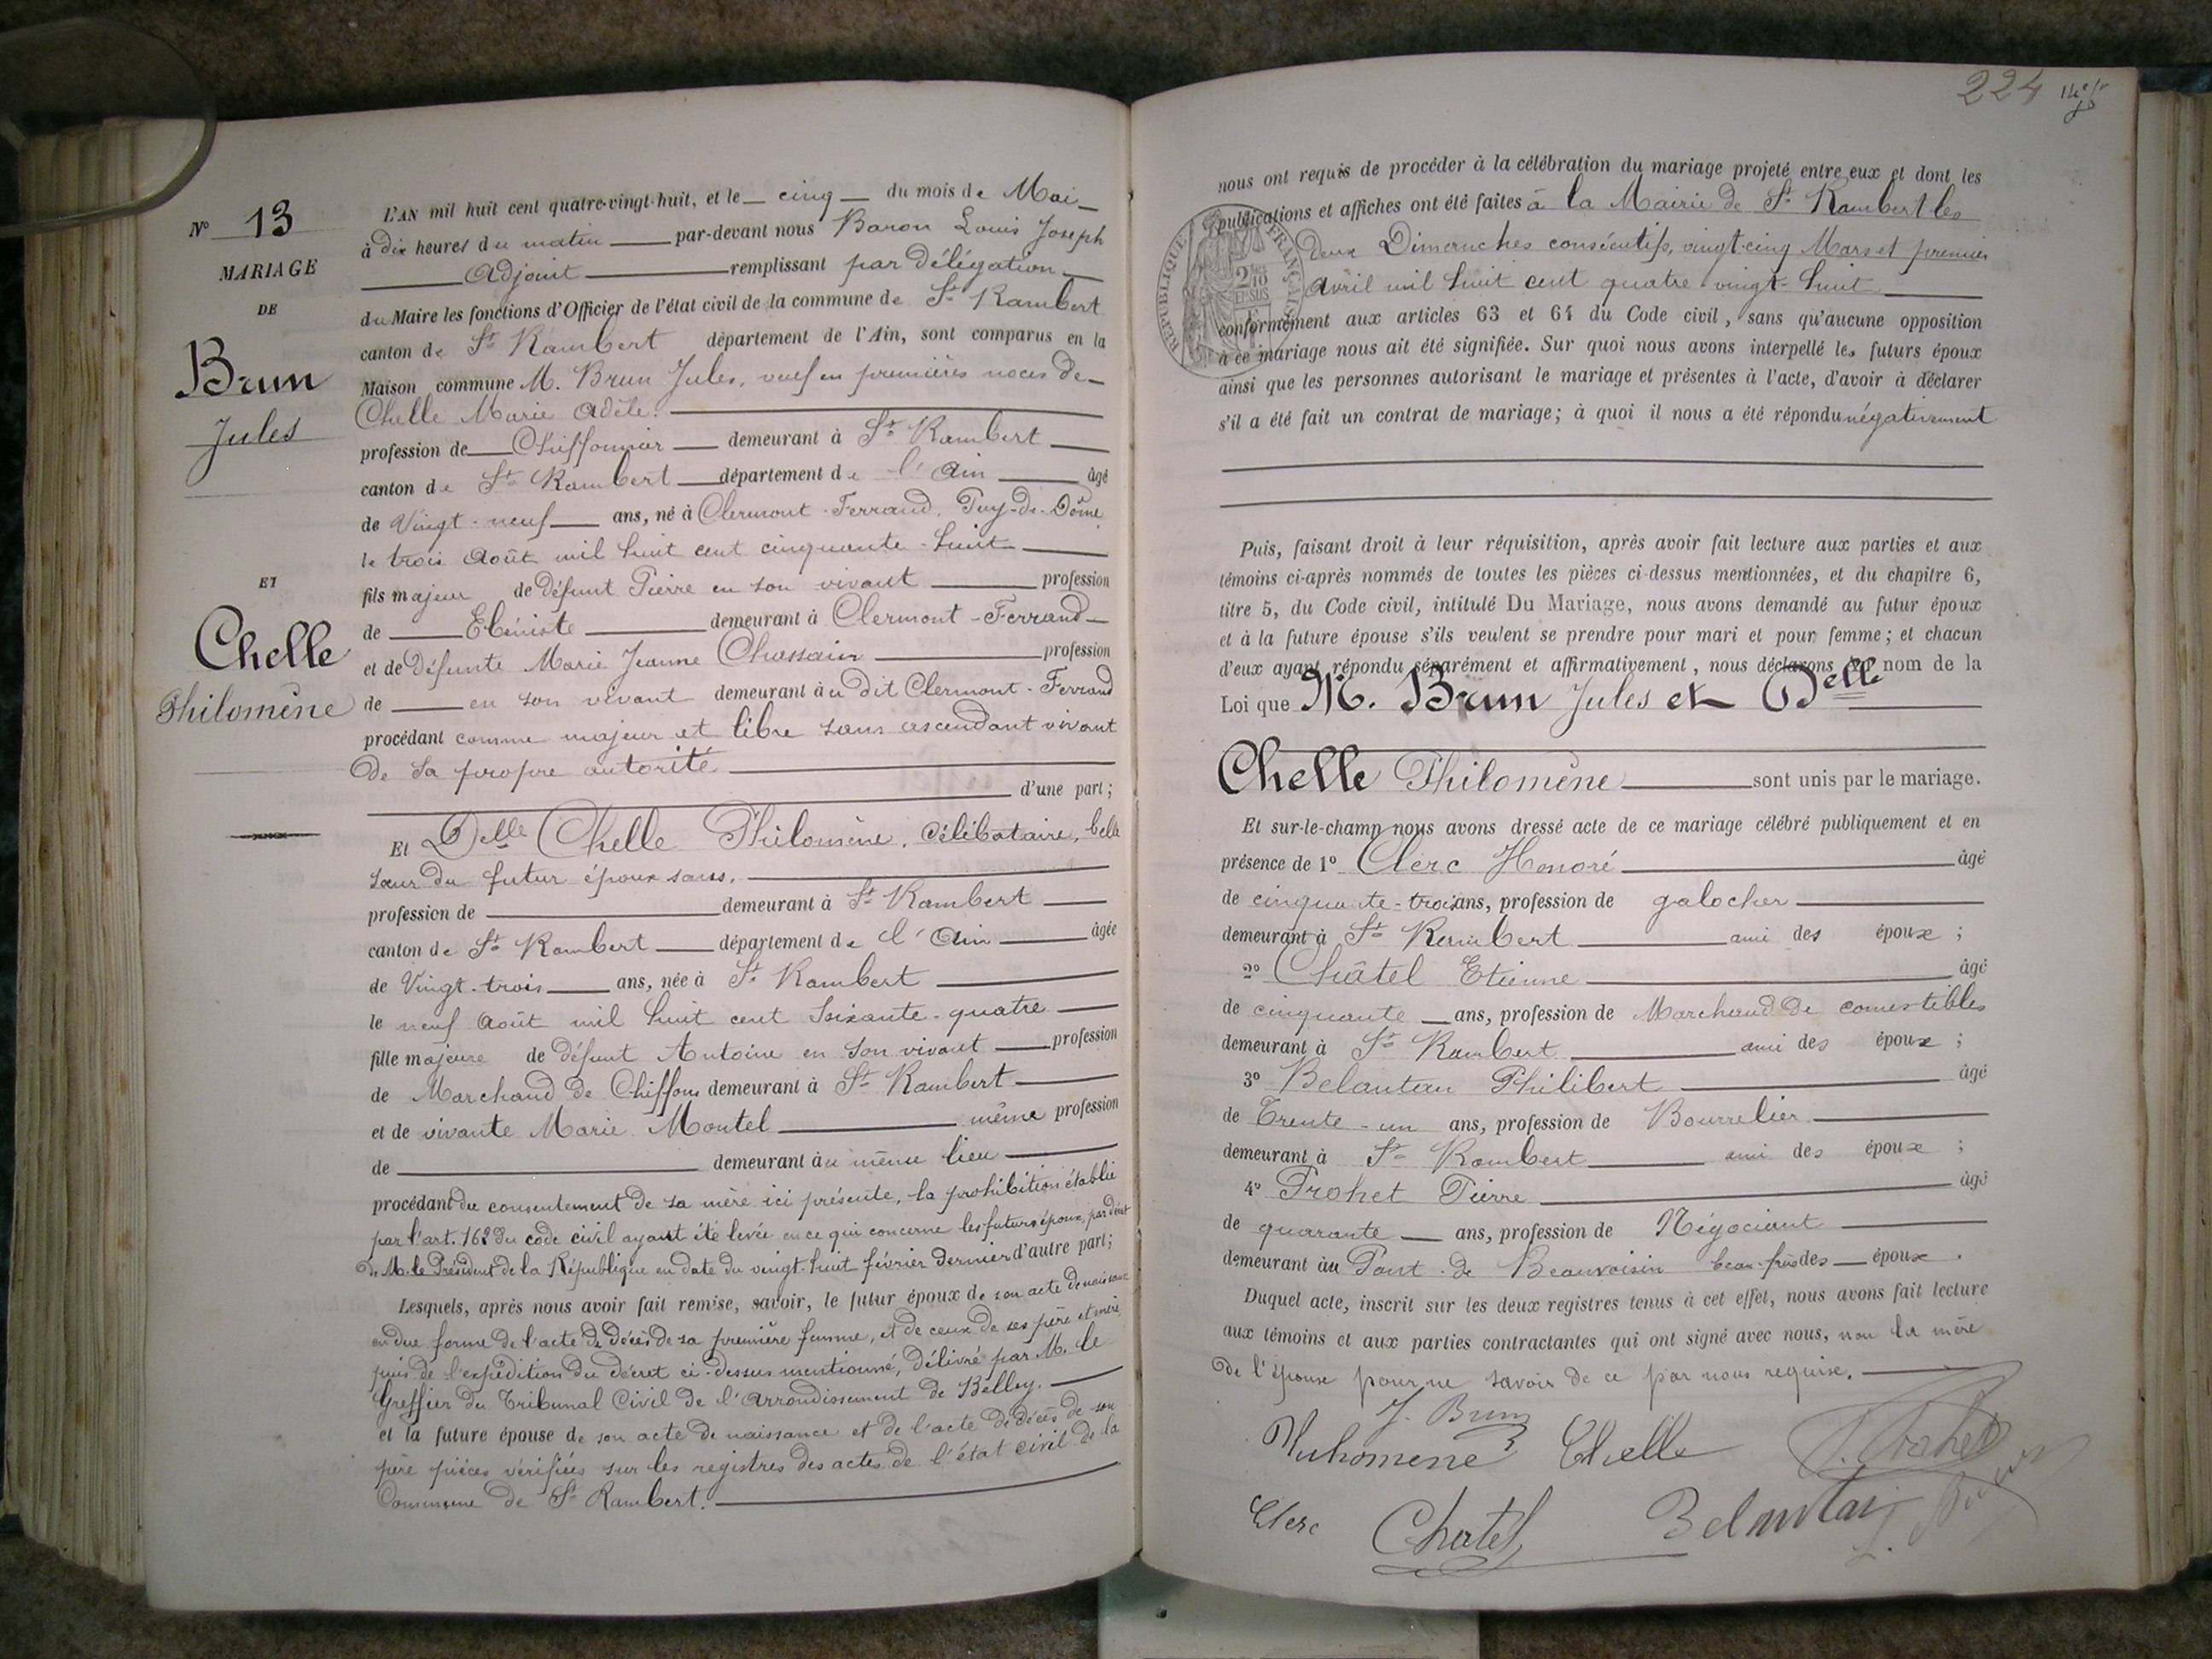 N° 13
MARIAGE
DE
Brun
Jules
ET
Chelle
Philomène
L'AN mil huit cent quatre-vingt-huit, et le cinq du mois de Mai
à dix heures du matin par-devant nous Baron Louis Joseph
Adjoint remplissant par délégation
du Maire les fonctions d'Officier de l'état civil de la commune de St Rambert
canton de St Rambert département de l'Ain, sont comparus en la
Maison commune M. Brun Jules, veuf en premières noces de
Chelle Marie Adèle.
profession de Chiffonnier demeurant à St Rambert
canton de St Rambert département de l'Ain âgé
de Vingt-neuf ans, né à Clermont-Ferrand, Puy-de-Dôme
le trois Août mil huit cent cinquante-huit
fils majeur de défunt Pierre en son vivant profession
de Ebéniste demeurant à Clermont-Ferrand
et de défunte Marie Jeanne Chassain profession
de en son vivant demeurant au dit Clermont-Ferrand
procédant comme majeur et libre sans ascendant vivant
de sa propre autorité
d'une part;
Et Delle Chelle Philomène, célibataire, belle
sœur du futur époux sans,
profession de demeurant à St Rambert
canton de St Rambert département de l'Ain âgée
de Vingt-trois ans, née à St Rambert
le neuf Août mil huit cent soixante-quatre
fille majeure de défunt Antoine en son vivant profession
de Marchand de Chiffons demeurant à St Rambert
et de vivante Marie Montel même profession
de demeurant au même lieu
procédant du consentement de sa mère ici présente, la prohibition établie
par l'art. 162 du code civil ayant été levée en ce qui concerne les futurs époux, par décret
de M. le Président de la République en date du vingt-huit février dernier d'autre part;
Lesquels, après nous avoir fait remise, savoir, le futur époux de son acte de naissance
en due forme de l'acte de décès de sa première femme, et de ceux de ses père et mère
puis de l'expédition du décret ci-dessus mentionné, délivré par M. le
Greffier du Tribunal Civil de l'arrondissement de Belley.
et la future épouse de son acte de naissance et de l'acte de décès de son
père pièces vérifiées sur les registres des actes de l'état civil de la
Commune de St Rambert.
224
nous ont requis de procéder à la célébration du mariage projeté entre eux et dont les
publications et affiches ont été faites à la Mairie de St Rambert les
deux Dimanches consécutifs, vingt-cinq Mars et premier
Avril mil huit cent quatre-vingt-huit
conformément aux articles 63 et 64 du Code civil, sans qu'aucune opposition
à ce mariage nous ait été signifiée. Sur quoi nous avons interpellé les futurs époux
ainsi que les personnes autorisant le mariage et présentes à l'acte, d'avoir à déclarer
s'il a été fait un contrat de mariage; à quoi il nous a été répondu négativement
RÉPUBLIQUE FRANÇAISE
Puis, faisant droit à leur réquisition, après avoir fait lecture aux parties et aux
témoins ci-après nommés de toutes les pièces ci-dessus mentionnées, et du chapitre 6,
titre 5, du Code civil, intitulé Du Mariage, nous avons demandé au futur époux
et à la future épouse s'ils veulent se prendre pour mari et pour femme; et chacun
d'eux ayant répondu séparément et affirmativement, nous déclarons au nom de la
Loi que M. Brun Jules et Delle
Chelle Philomène sont unis par le mariage.
Et sur-le-champ nous avons dressé acte de ce mariage célébré publiquement et en
présence de 1° Clerc Honoré âgé
de cinquante-trois ans, profession de galocher
demeurant à St Rambert ami des époux;
2° Châtel Etienne âgé
de cinquante ans, profession de Marchand de comestibles
demeurant à St Rambert ami des époux;
3° Belantan Philibert âgé
de Trente-un ans, profession de Bourrelier
demeurant à St Rambert ami des époux;
4° Prohet Pierre âgé
de quarante ans, profession de Négociant
demeurant au Pont-de Beauvoisin beau-frère des époux.
Duquel acte, inscrit sur les deux registres tenus à cet effet, nous avons fait lecture
aux témoins et aux parties contractantes qui ont signé avec nous, non la mère
de l'épouse pour ne savoir de ce par nous requise.
J. Brun
Philomene Chelle
P. Prohet
Clerc
Chatel
Belantan